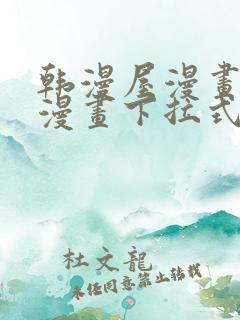 韩漫屋漫畫
漫畫下拉式
杜文龍
未经同意禁止转载